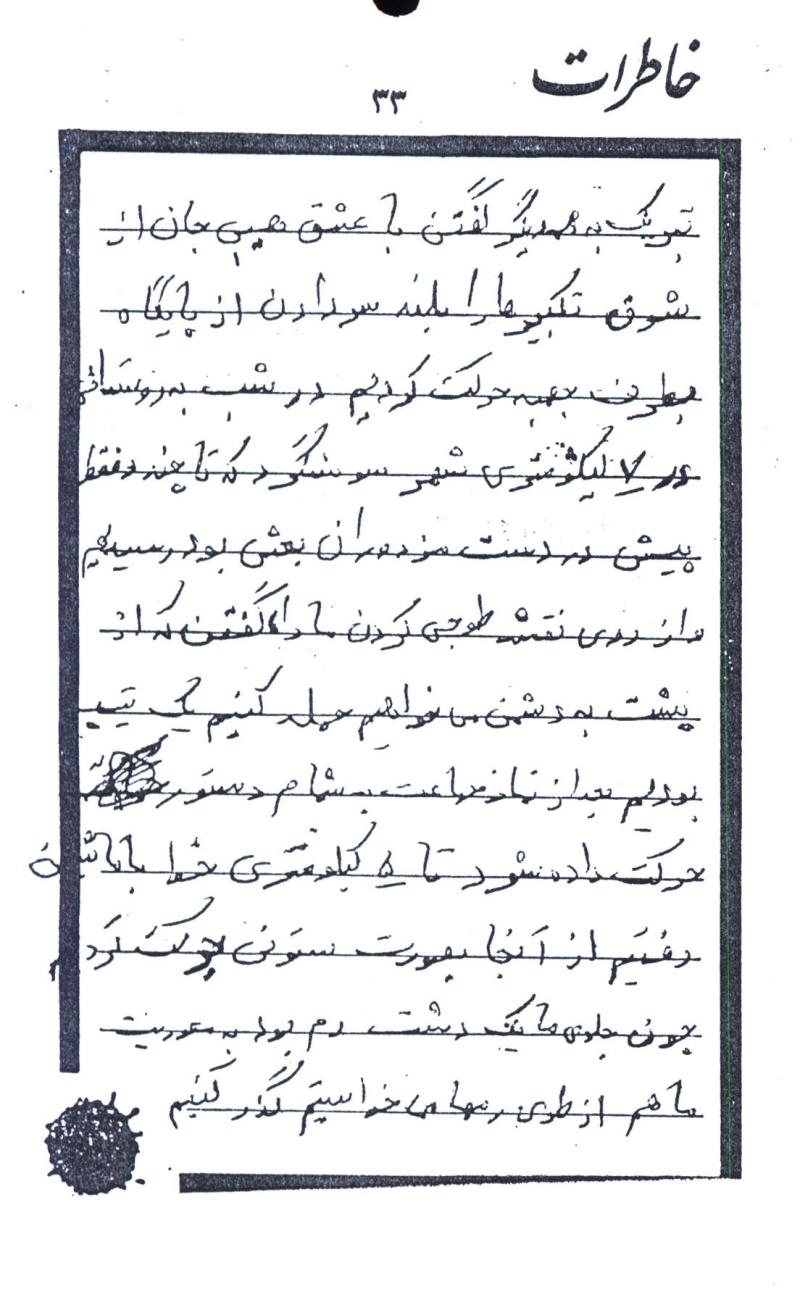 خاطرات
۳۳
تبریک به همدیگر گفتن با عشق هیبی جان از
شوق تکبیرها را بلند سر دادن از پایگاه
بطرف جبهه حرکت کردیم در شب به روستائی
در ۷ کیلومتری شهر سوسنگرد که تا چند دقیقه
پیش در دست مزدوران بعثی بود رسیدیم
و از روی نقشه طرحی کردن ما را گفتن که از
پشت به دشمن می خواهیم حمله کنیم یک تیپ
بودیم بعد از نماز جماعت به شام دستور
حرکت داده شود تا ۵ کیلومتری خط با ماشین
رفتیم از آنجا بصورت ستونی حرکت کردیم
چون جلوی ما یک دشت رم بود به صورت
ما هم از طوی رمها می خواستیم گذر کنیم